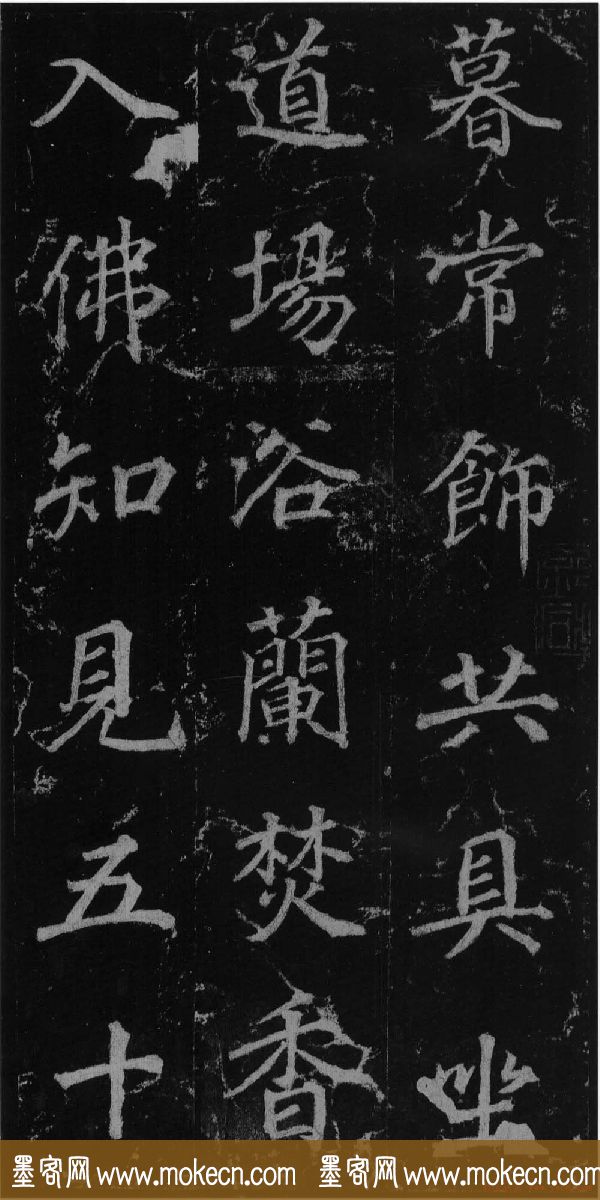 暮常飾共具坐
道場浴蘭焚香
入佛知見五十
墨客网 www.mokecn.com 墨客网 www.mokecn.com